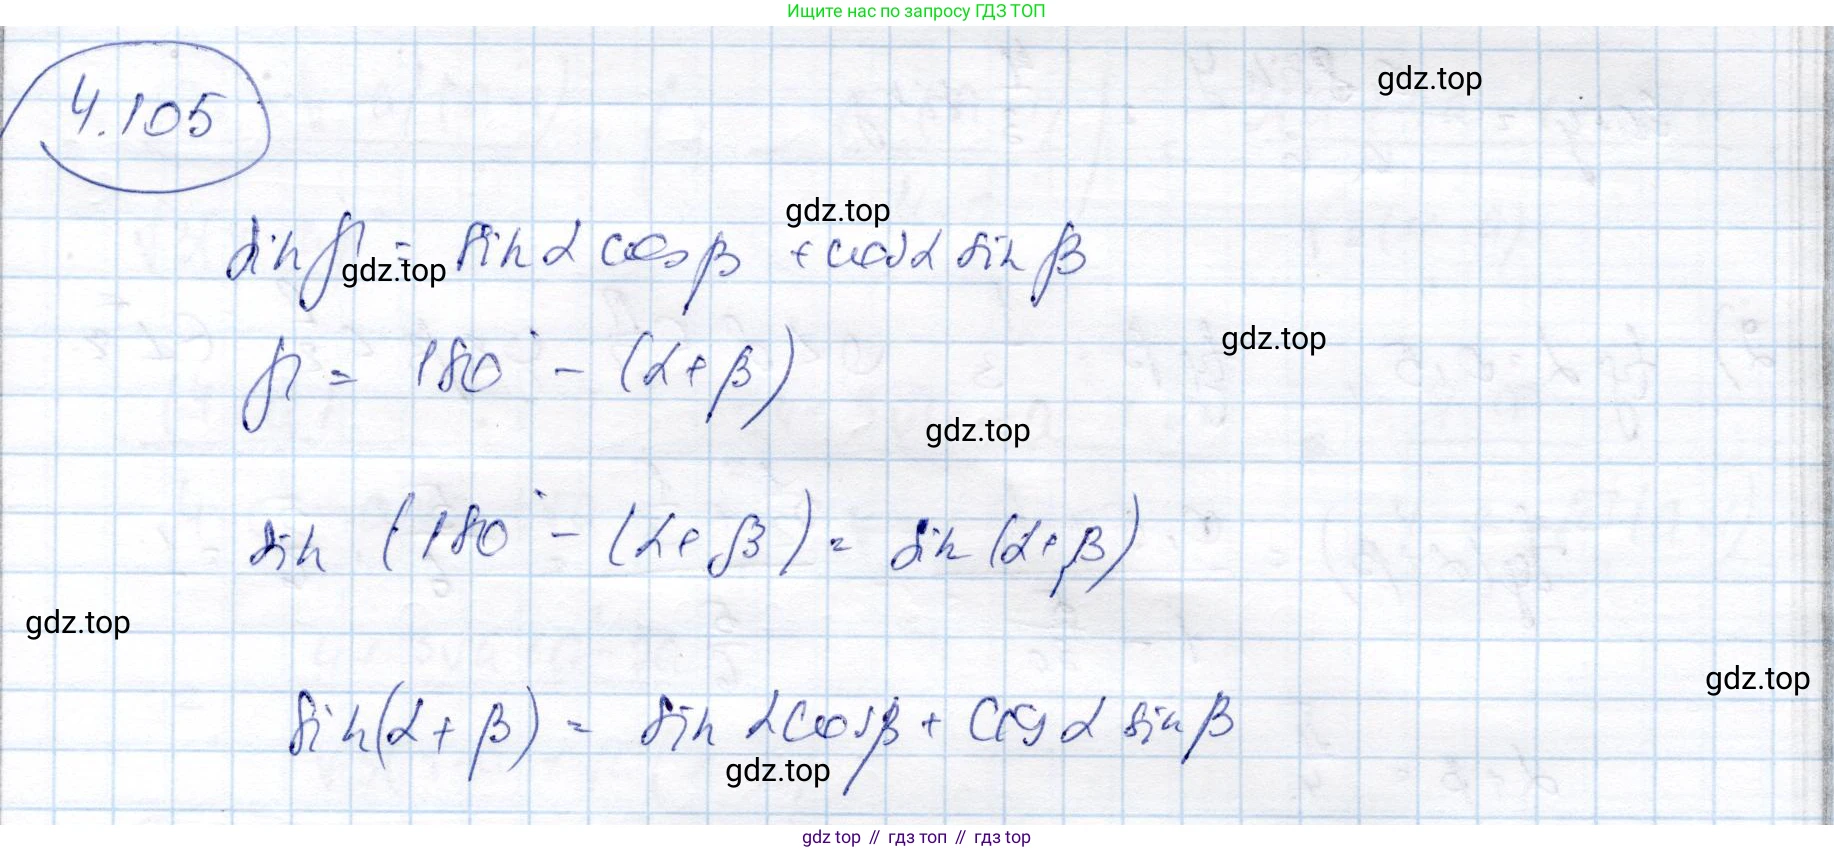 Ищите нас по запросу ГДЗ ТОП
4.105
gdz.top
gdz.top
sin γ = sin α cos β + cos α sin β
gdz.top
gdz.top
γ = 180° - (α + β)
gdz.top
sin (180° - (α + β) = sin (α + β)
gdz.top
gdz.top
sin(α + β) = sin α cos β + cos α sin β
gdz.top
gdz top // гдз топ // gdz top